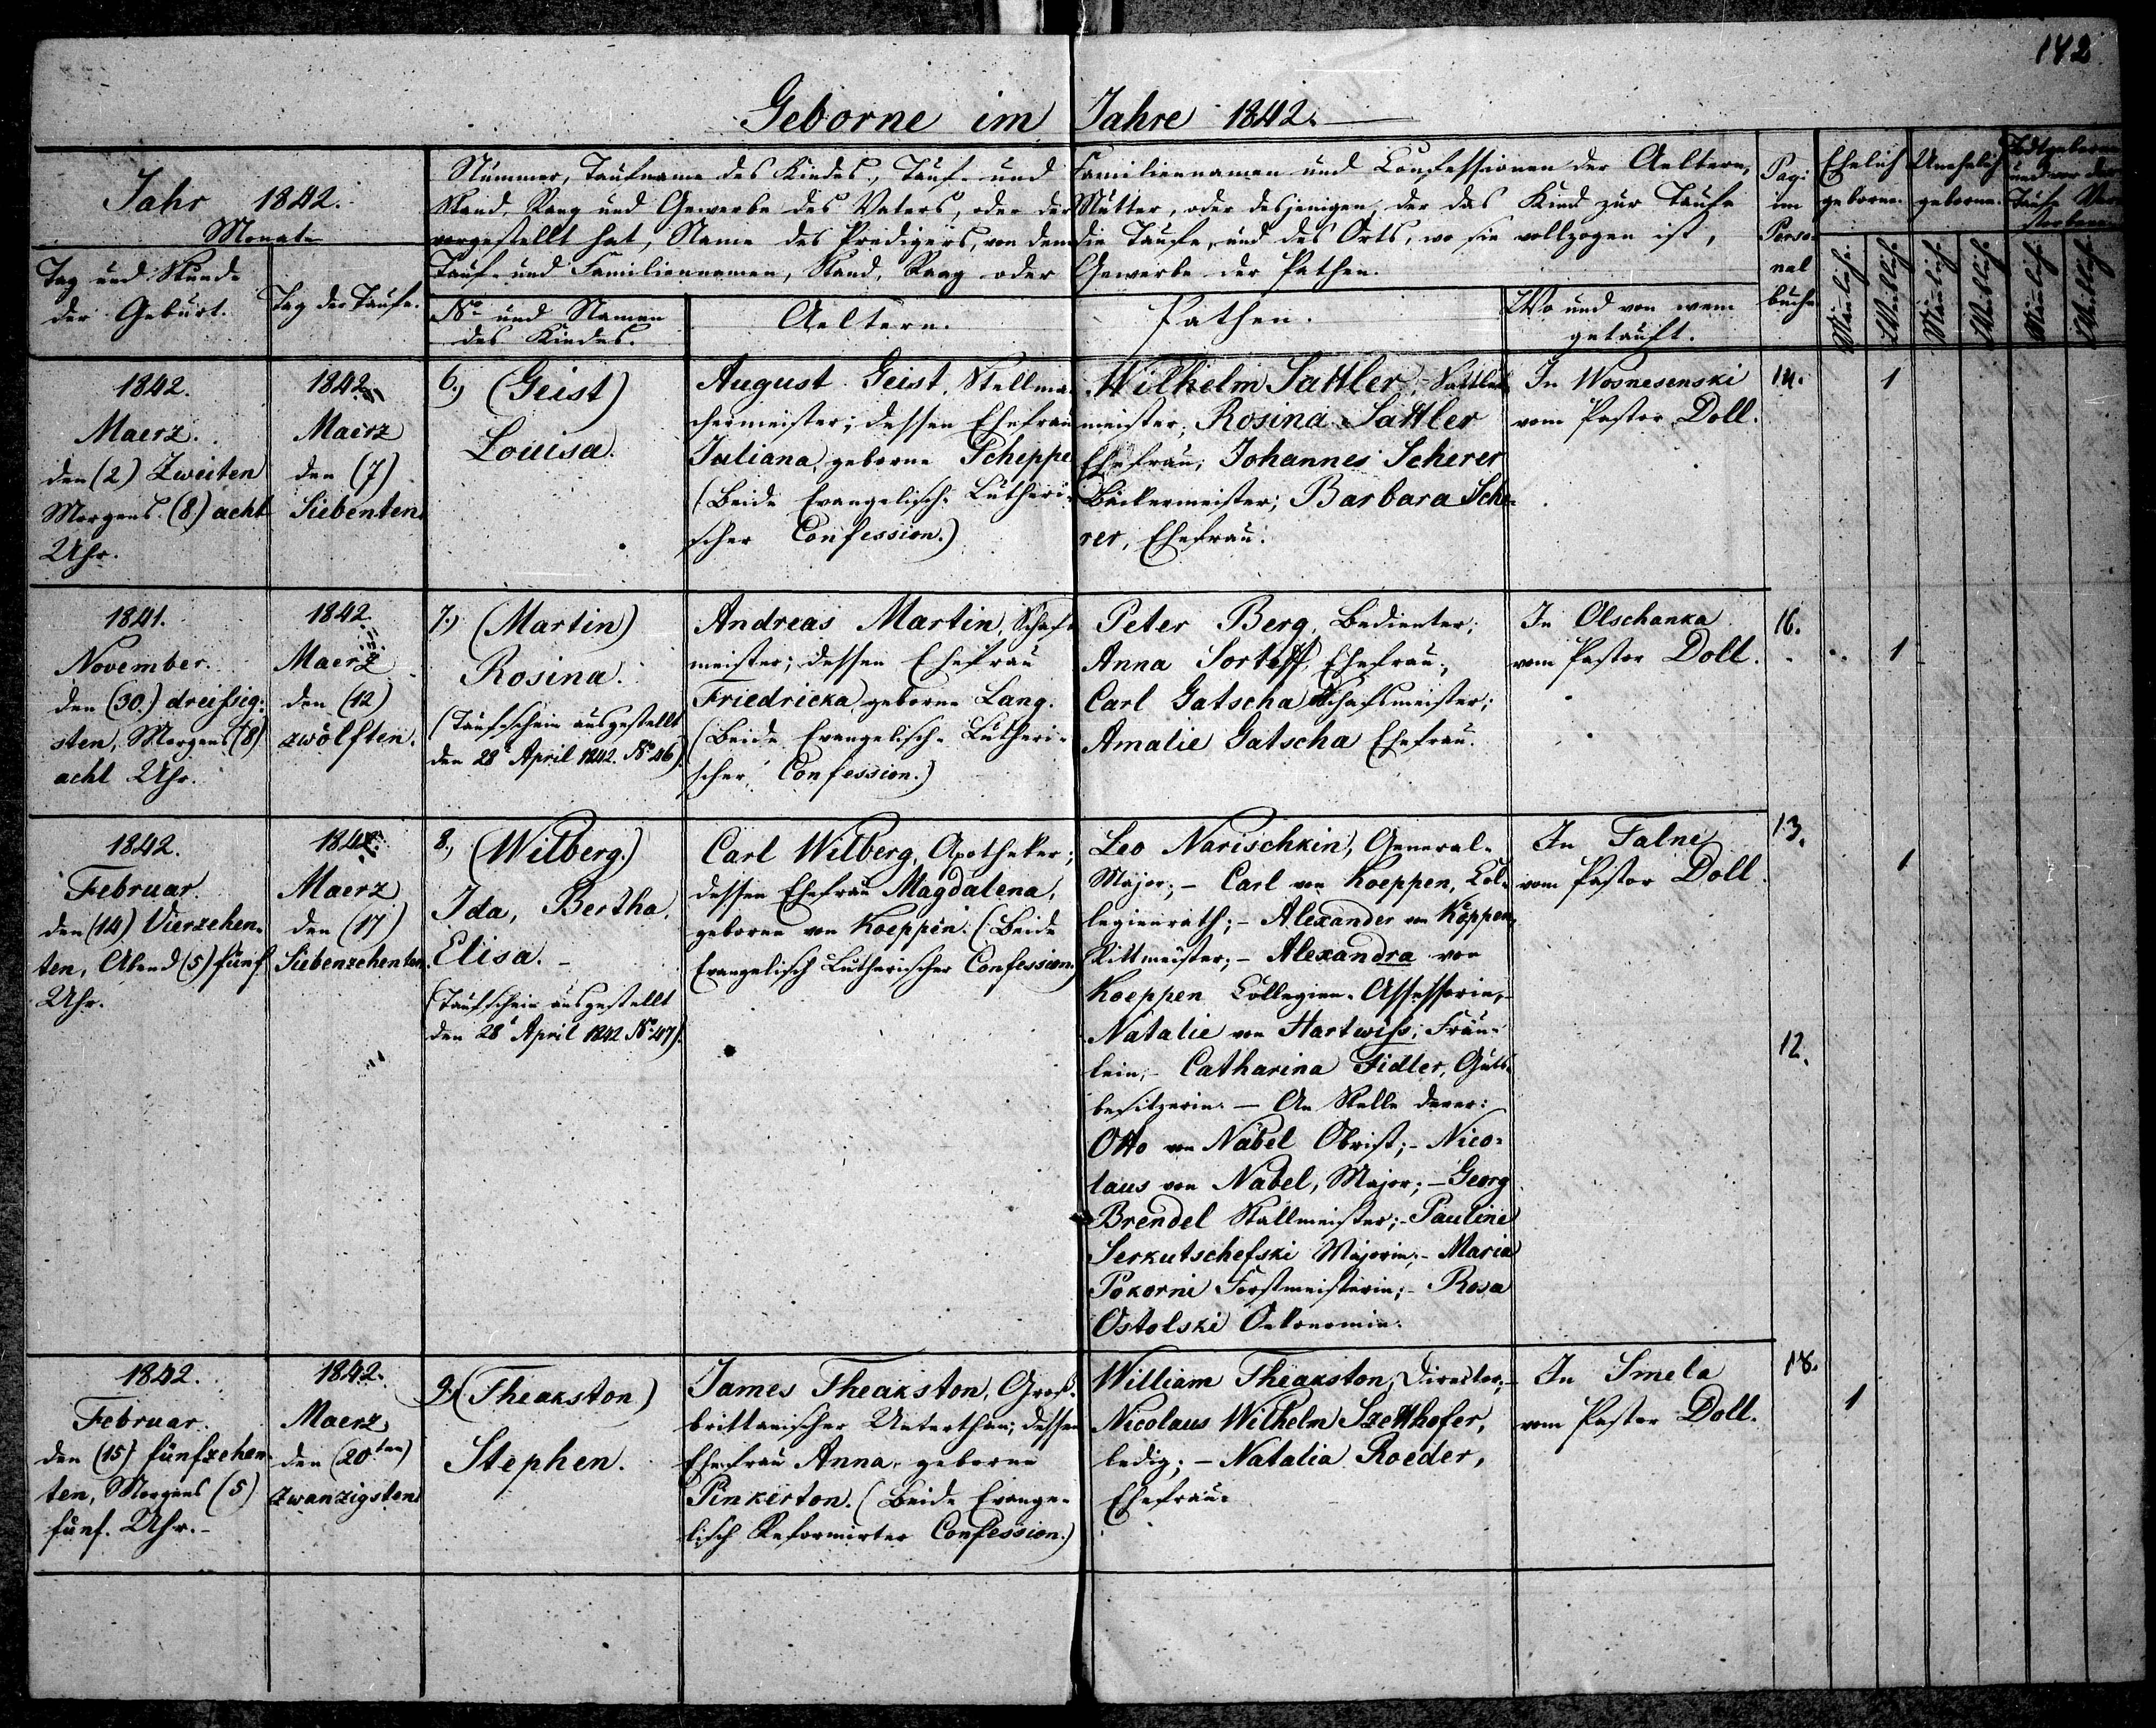 142
Geborne im Jahre 1842.
Jahr 1842.
Monate
Tag und Stunde
der Geburt.
Tag der Taufe.
Nummer, Taufname des Kindes, Tauf- und Familiennamen und Confessionen der Aeltern,
Stand, Rang und Gewerbe des Vaters, oder der Mutter, oder desjenigen, der das Kind zur Taufe
vorgestellt hat, Name des Predigers, von dem die Taufe, und des Orts, wo sie vollzogen ist,
Tauf- und Familiennamen, Stand, Rang oder Gewerbe der Pathen.
No und Namen
des Kindes.
Aeltern.
Pathen.
Wo und von wem
getauft.
Pag:
im
Perso-
nal
buche
Ehelich
geborne.
Unehelich
geborne.
Todtgeborne
und vor der
Taufe Ver-
storbene
Mänlich.
Weiblich
Mänlich
Weiblich
Mänlich
Weiblich
1842.
Maerz.
den (2) Zweiten
Morgens (8) acht
Uhr.
1842
Maerz
den (7)
Siebenten
6., (Geist)
Louisa.
August Geist, Stellma-
chermeister; dessen Ehefrau
Juliana, geborne Scheppe
(Beide Evangelisch-Lutheri-
scher Confession.)
Wilhelm Sattler, Sattler
meister; Rosina Sattler
Ehefrau; Johannes Scherer
Bäckermeister; Barbara Sche-
rer, Ehefrau.
In Wosnesenski
vom Pastor Doll.
14.
1
1841.
November.
den (30.) dreissig-
sten, Morgens (8)
acht Uhr.
1842
Maerz
den (12)
zwölften.
7.) (Martin)
Rosina.
(Taufschein ausgestellt
den 28t April 1842. No 46)
Andreas Martin, Schaf-
meister; dessen Ehefrau
Friedricka, geborne Lang.
(Beide Evangelisch-Lutheri-
scher Confession.)
Peter Berg, Bedienter;
Anna Sortoff, Ehefrau;
Carl Gatscha Schafmeister;
Amalie Gatscha Ehefrau.
In Olschanka
vom Pastor Doll.
16.
1
1842.
Februar.
den (14) Vierzehen-
ten, Abend (5) fünf
Uhr.
1842
Maerz
den (17)
Siebenzehenten.
8., (Wilberg.)
Ida, Bertha,
Elisa.
(Taufschein ausgestellt
den 28t April 1842 No 47)
Carl Wilberg, Apotheker;
dessen Ehefrau Magdalena,
geborne von Koeppen. (Beide
Evangelisch Lutherischer Confession.)
Leo Narischkin, General-
Major; - Carl von Koeppen, Col-
legienrath; - Alexander von Köppen,
Rittmeister; - Alexandra von
Koeppen Collegien-Assessorin, -
Natalie von Hartwiss, Fräu-
lein, - Catharina Fidler, Guts-
besitzerin. - An Stelle derer:
Otto von Nabel Obrist; - Nico-
laus von Nabel, Major; - Georg
Brendel Stallmeister; - Pauline
Serkutschefski Majorin; - Maria
Pokorni Forstmeisterin; - Rosa
Ostolski Oekonomin.
In Talne
vom Pastor Doll.
13.
1
12.
1842.
Februar.
den (15) fünfzehen-
ten, Morgens (5)
fünf. Uhr.-
1842.
Maerz
den (20ten)
Zwanzigsten
9.) (Theakston)
Stephen.
James Theakston, Gross-
brittanischer Unterthan; dessen
Ehefrau Anna, geborne
Pinkerton. (Beide Evange-
lisch Reformirter Confession.)
William Theakston, Director;-
Nicolaus Wilhelm Szetthofer,
ledig; - Natalia Roeder,
Ehefrau.
In Smela
vom Pastor Doll.
18.
1